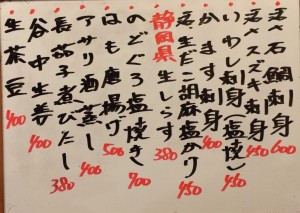 活〆石鯛刺身 600
活〆スズキ刺身 450
いわし刺身(塩焼) 450
かます刺身 400
活生だこ胡麻塩かり 450
静岡県生しらす 380
のどぐろ塩焼き 700
はも唐揚げ 500
アサリ酒蒸し 400
長茄子煮びたし 380
谷中生姜 400
生茶豆 400